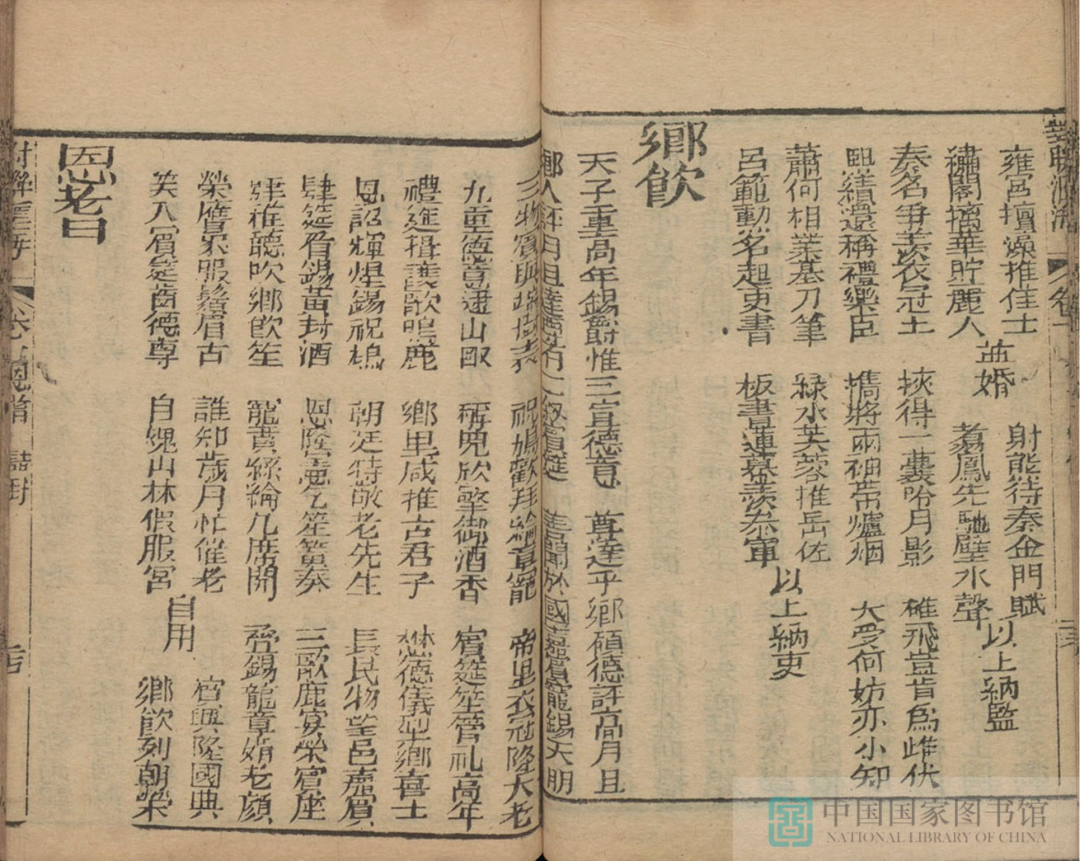 雍宮擅藻推佳士 射能待奏金門賦
繡閣擒華貯麗人 並婚 翥鳳先馳璧水聲 以上納監
秦名爭羨衣冠士 挾得一囊吟月影 雄飛豈肯爲雌伏
繼續還稱禮樂臣 攜將兩袖帶爐烟 大受何妨亦小知
蕭何相業基刀筆 綠水芙蓉推岳佐
呂範勳名起吏書 板書蓮幕羨參軍 以上納吏
鄉飲
天子重高年錫爵惟三宜德意 尊達乎鄉碩德評高月旦
鄉人 月旦達尊 賓筵 善聞於國嘉賓寵錫天朝
三物賓興 祝鳩歡拜綸音寵 帝里衣冠隆大老
九重德意 山 稱兕欣擎御酒香 賓筵笙管礼高年
禮筵揖讓歌鳴鹿 鄉里咸推古君子 懋德儀型鄉喜士
恩詔輝煌錫祝鳩 朝廷特敬老先生 長民物望邑嘉賓
肆筵胥錫黃封酒 恩隆壺乞笙簧奏 三歌鹿宴榮賓座
聽吹鄉飲笙 寵賁絲綸几席開 啻錫龍章娟老顏
榮膺 服鬚眉古 誰知歲月忙催老 賓興隆國典
笑入賓筵齒德尊 自愧山林假服宮 自用 鄉飲列朝榮
恩耆
卷 詩對
中国国家图书馆
NATIONAL LIBRARY OF CHINA